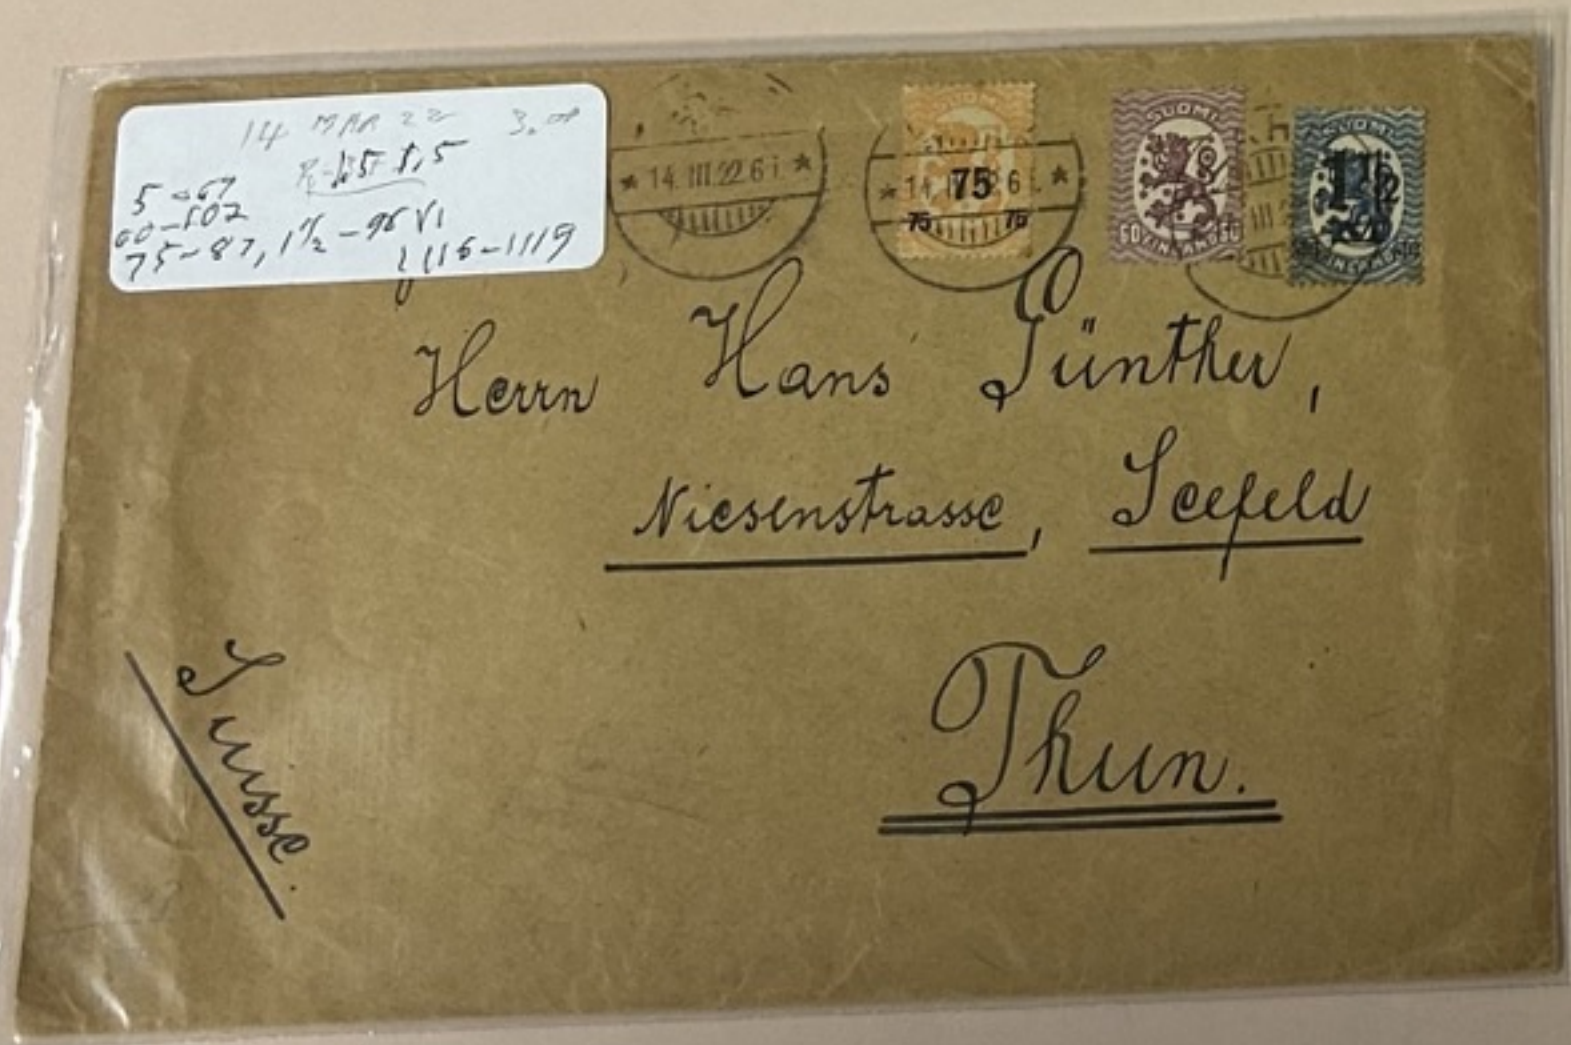 14 MAR 22 3.00
5 - 67
60 - 102
75 - 87, 1½ - 96 VI
1116 - 1119
* 14.III.22.6 i. *
* 14. 6 i. *
75
75 75
SUOMI
60 FINLAND 60
SUOMI
1½
III
Herrn Hans Günther,
Niesenstrasse, Seefeld
Thun.
Suisse.